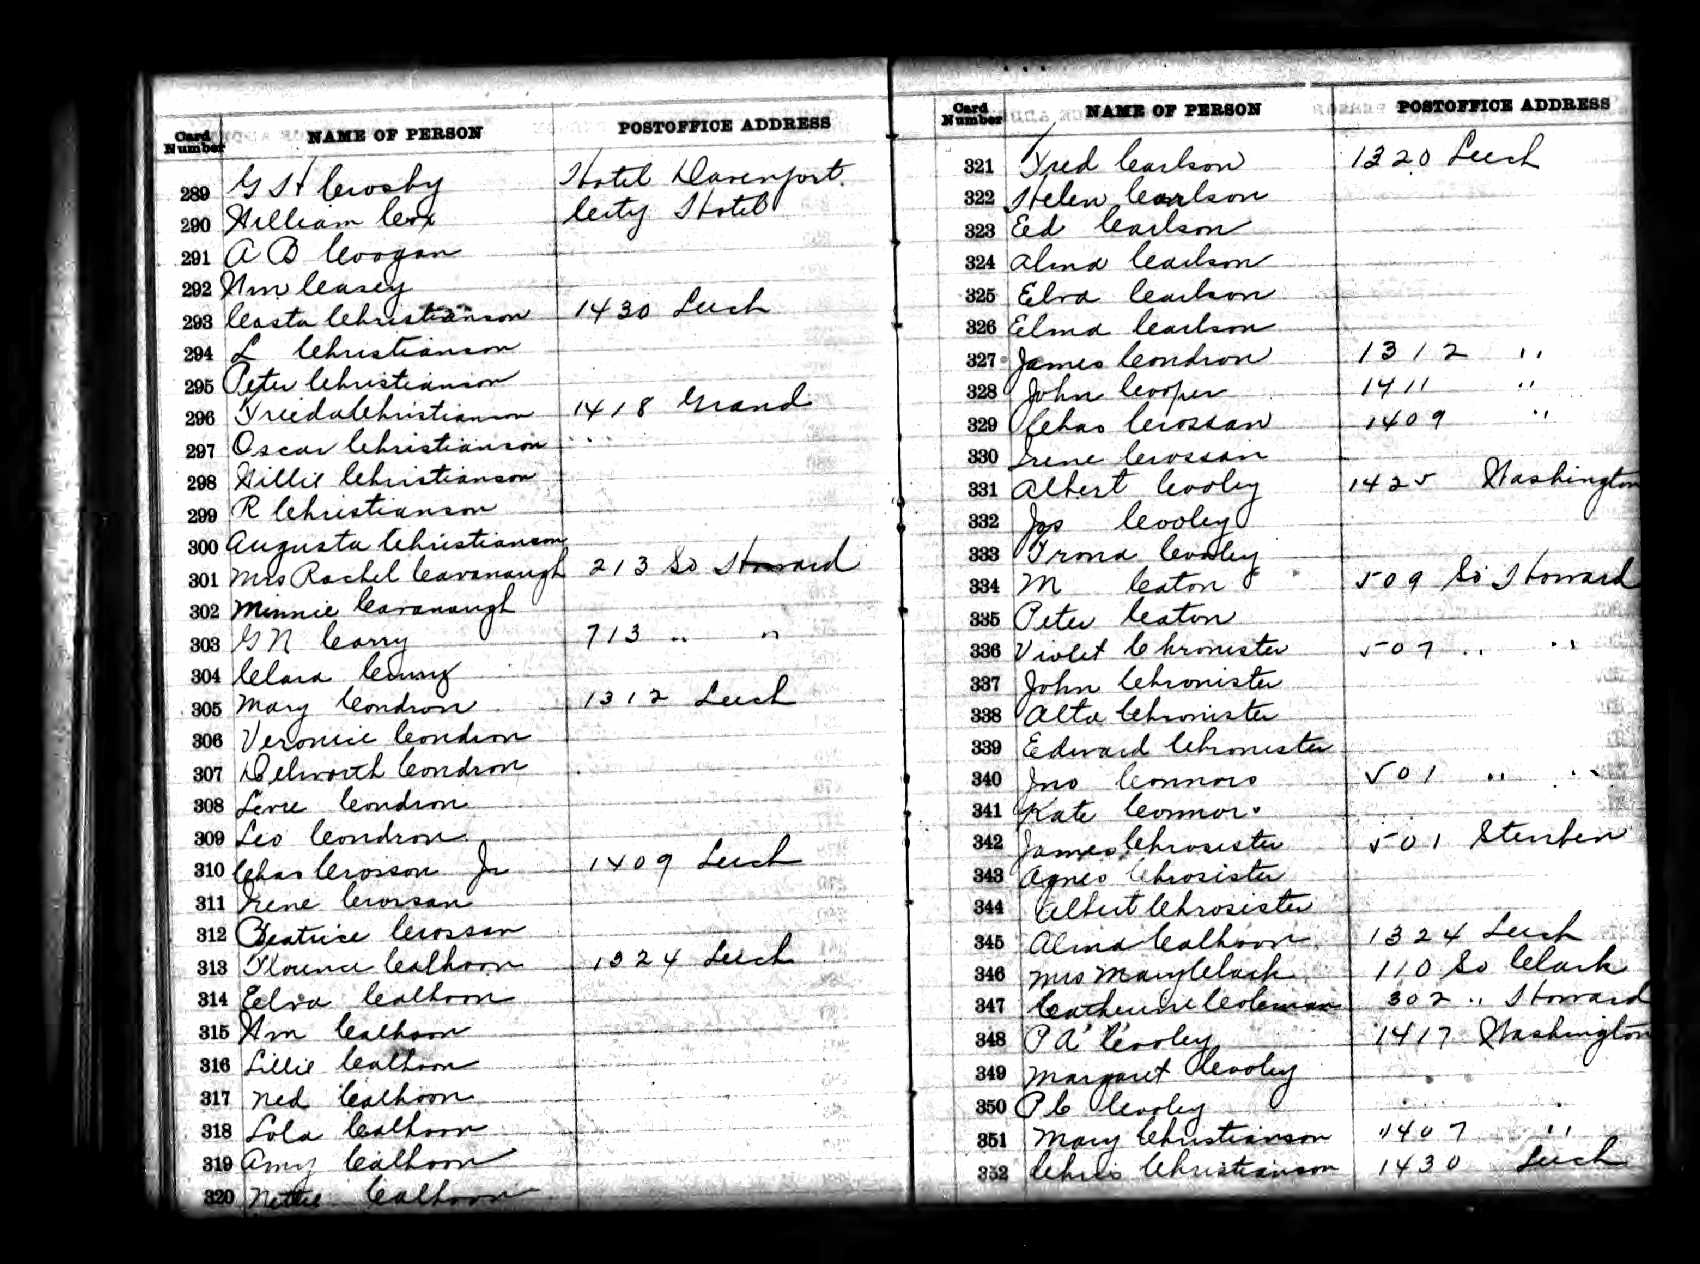 Card Number NAME OF PERSON POSTOFFICE ADDRESS
289 G H Crosby Hotel Davenport
290 William Cox City Hotel
291 A B Coogan
292 Wm Casey
293 Casta Christianson 1430 Leech
294 L Christianson
295 Peter Christianson
296 Frieda Christianson 1418 Grand
297 Oscar Christianson " "
298 Willie Christianson
299 R Christianson
300 Augusta Christianson
301 Mrs Rachel Cavanaugh 213 So Howard
302 Minnie Cavanaugh
303 G N Carry 713 " "
304 Clara
305 Mary Condron 1312 Leech
306 Veronie Condron
307 Delworth Condron
308 Condron
309 Leo Condron
310 Chas Crosson Jr 1409 Leech
311 Irene Crossan
312 Beatrice Crossan
313 Florence Calhoon 1324 Leech
314 Eelva Calhoon
315 Wm Calhoon
316 Lillie Calhoon
317 Ned Calhoon
318 Lola Calhoon
319 Amy Calhoon
320 Nettie Calhoon
Card Number NAME OF PERSON POSTOFFICE ADDRESS
321 Fred Carlson 1320 Leech
322 Helen Carlson
323 Ed Carlson
324 Alma Carlson
325 Elva Carlson
326 Elma Carlson
327 James Condron 1312 "
328 John Cooper 1411 "
329 Chas Crossan 1409 "
330 Irene Crossan
331 Albert Cooley 1425 Washington
332 Jas Cooley
333 Cooley
334 M Caton 509 So Howard
335 Peter Caton
336 Violet Chronister 507 " "
337 John Chronister
338 Alta Chronister
339 Edward Chronister
340 Jno Connors 501 " "
341 Kate Connor
342 James Chrosister 501 Steuben
343 Agnes Chrosister
344 Albert Chrosister
345 Alma Calhoon 1324 Leech
346 Mrs Mary Clark 110 So Clark
347 Catherine Coleman 302 " Howard
348 P A Cooley 1417 Washington
349 Margaret Cooley
350 P C Cooley
351 Mary Christianson 1407 "
352 Chris Christianson 1430 Leech